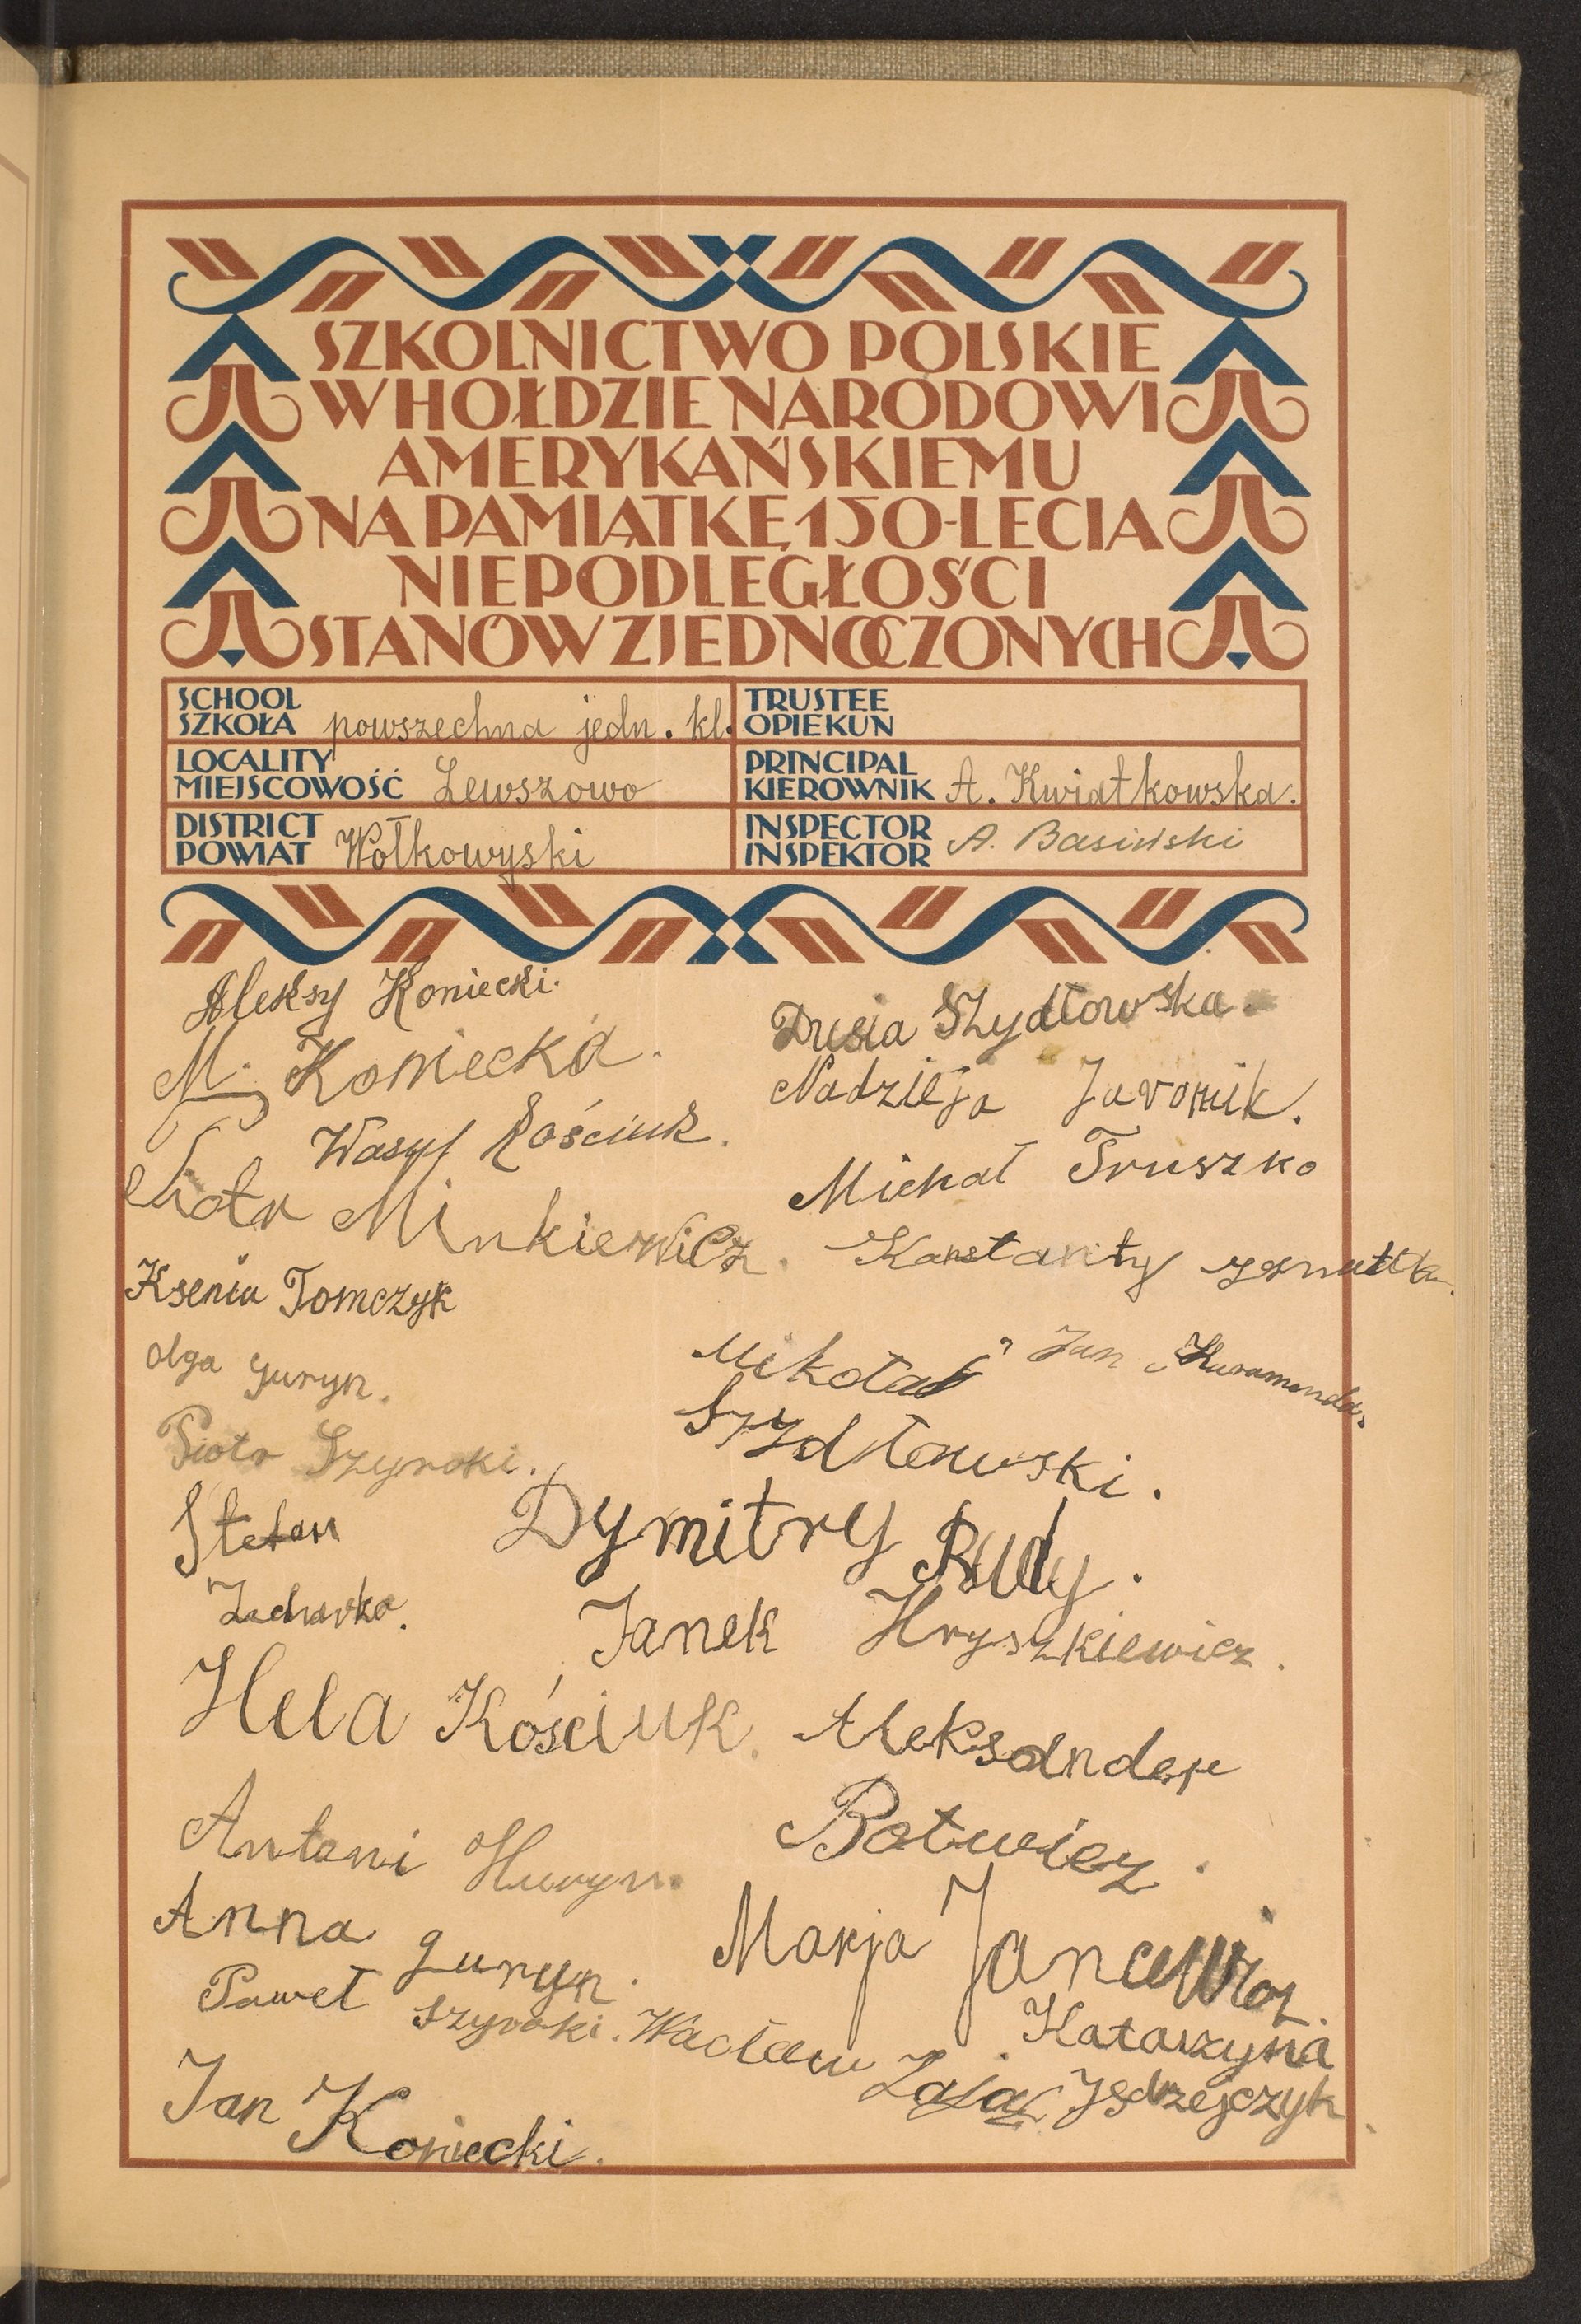 SZKOLNICTWO POLSKIE
W HOŁDZIE NARODOWI
AMERYKAŃSKIEMU
NA PAMIĄTKĘ 150-LECIA
NIEPODLEGŁOŚCI
STANÓW ZJEDNOCZONYCH
SCHOOL
SZKOŁA powszechna jedn. kl.
TRUSTEE
OPIEKUN
LOCALITY
MIEJSCOWOŚĆ Lewszowo
PRINCIPAL
KIEROWNIK A. Kwiatkowska.
DISTRICT
POWIAT Wołkowyski
INSPECTOR
INSPEKTOR A. Basiński
Aleksy Koniecki.
M. Koniecka.
Wasyl Kościuk.
Piotr Minkiewicz.
Ksenia Tomczyk
Olga Guryn.
Piotr Szyroki.
Stefan
Zacharko.
Hela Kościuk.
Antoni Huryn.
Anna Guryn.
Paweł Szyroki.
Jan Koniecki.
Dusia Szydłowska.
Nadzieja Jawornik.
Michał Truszko
Konstanty
Jan
Mikołaj
Szydłowski.
Dymitry Rudy.
Janek Hryszkiewicz.
Aleksander
Botwicz.
Marja Jancewicz.
Wacław Zając
Katarzyna
Jędrzejczyk.